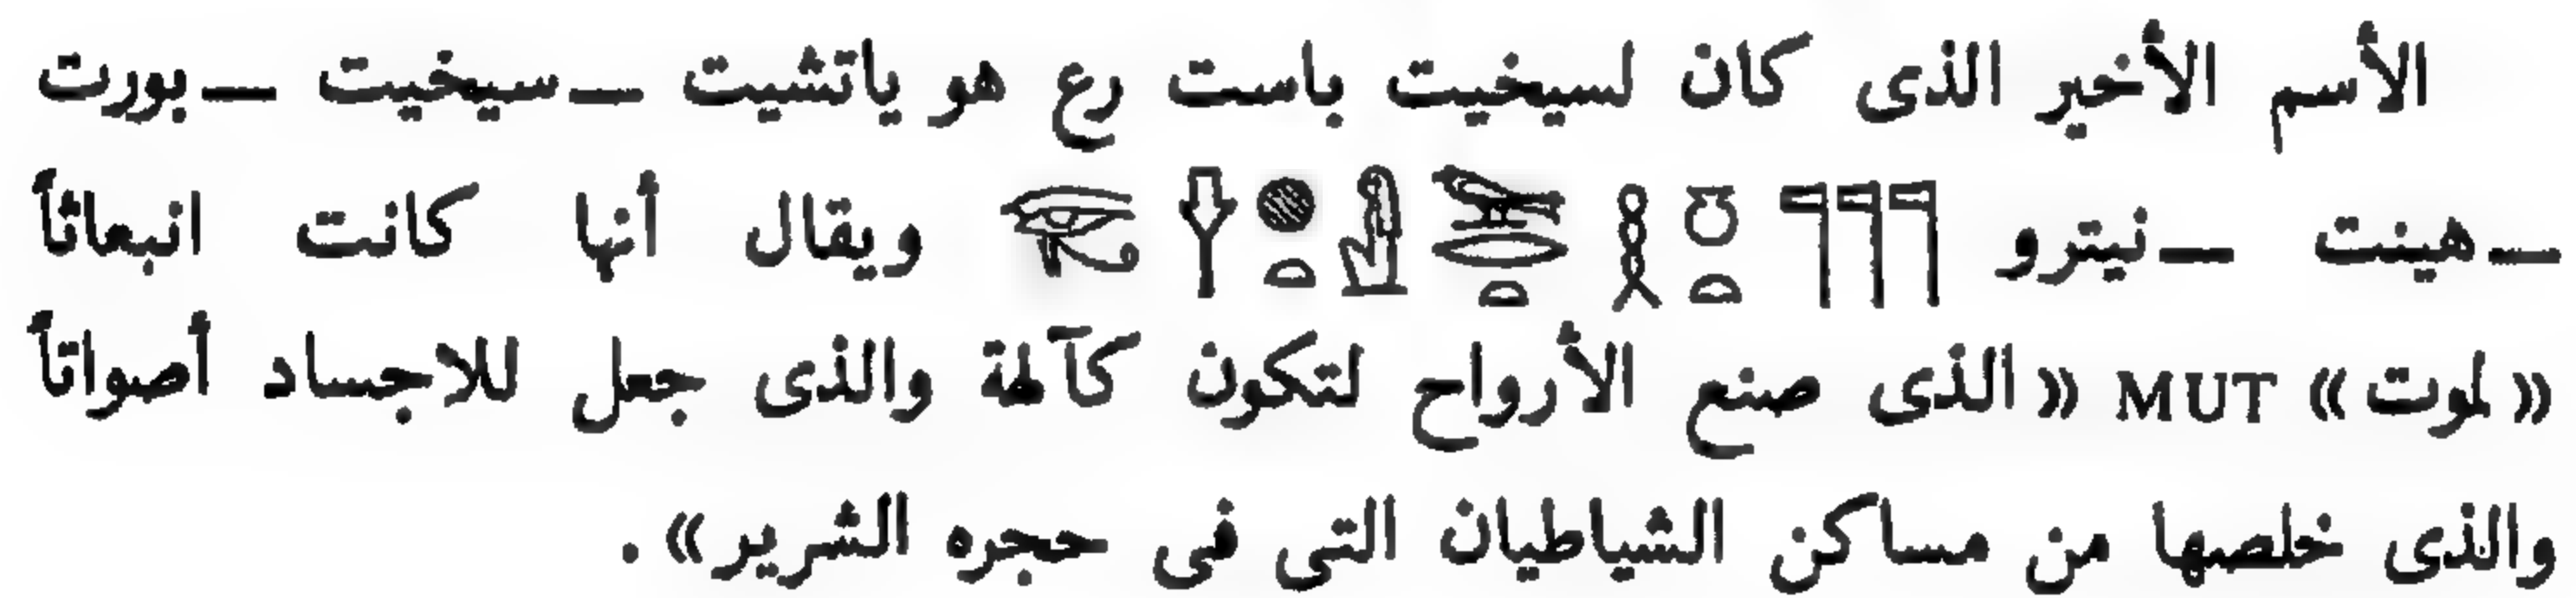 الأسم الأخير الذى كان لسيخيت باست رع هو ياتشيت – سيخيت – بورت
– هينت – نيترو 𓂀 𓌂 𓐍𓏏 𓁐 𓅨𓂋𓏏 𓎛 𓏌𓏏 𓊹𓊹𓊹 ويقال أنها كانت انبعاثاً
« لموت » MUT « الذى صنع الأرواح لتكون كآلهة والذى جعل للاجساد أصواتاً
والذى خلصها من مساكن الشياطيان التى فى حجره الشرير » .